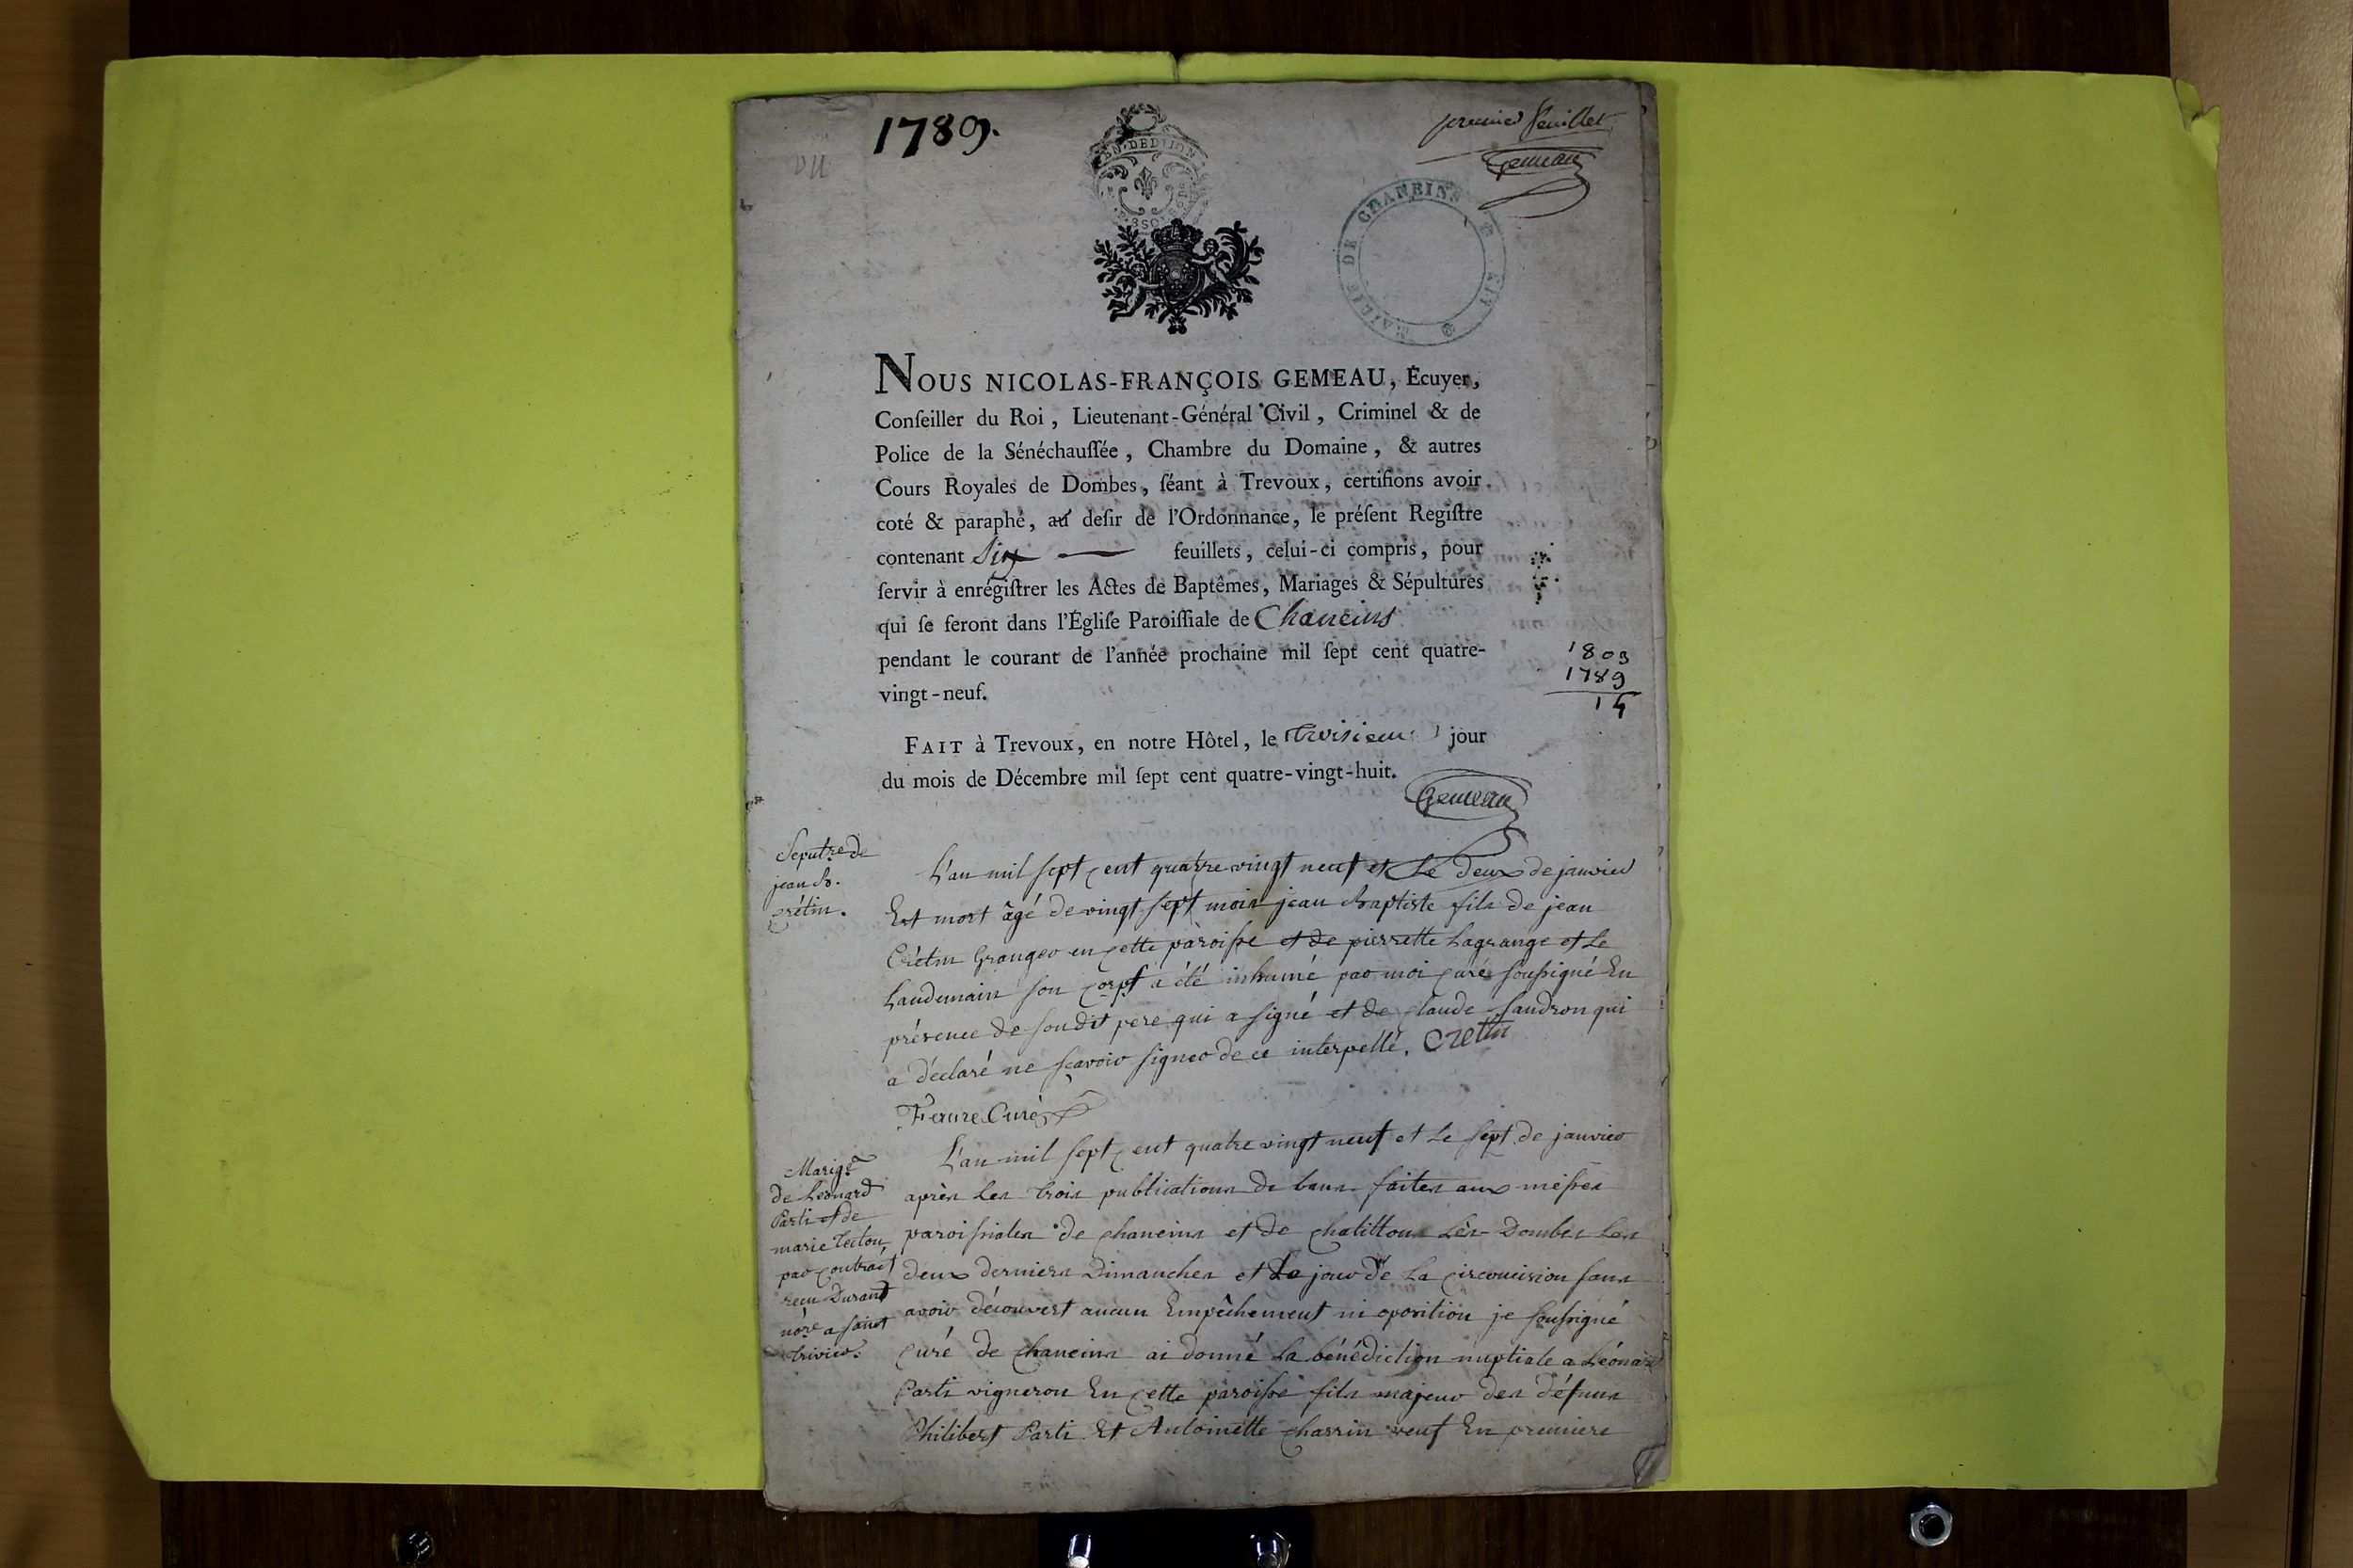 1789.
premier feuillet
Gemeau
MAIRIE DE CHANEINS
NOUS NICOLAS-FRANÇOIS GEMEAU, Écuyer,
Conſeiller du Roi, Lieutenant-Général Civil, Criminel & de
Police de la Sénéchauſſée, Chambre du Domaine, & autres
Cours Royales de Dombes, ſéant à Trevoux, certifions avoir
coté & paraphé, au deſir de l'Ordonnance, le préſent Regiſtre
contenant Six feuillets, celui-ci compris, pour
ſervir à enrégiſtrer les Actes de Baptêmes, Mariages & Sépultures
qui ſe feront dans l'Égliſe Paroiſſiale de Chaneins
pendant le courant de l'année prochaine mil ſept cent quatre-
vingt-neuf.
1803
1789
14
FAIT à Trevoux, en notre Hôtel, le troisieme jour
du mois de Décembre mil ſept cent quatre-vingt-huit.
Gemeau
Sepultre de
jean b.
crétin.
L'an mil sept cent quatre vingt neuf et Le deux de janvier
Est mort âgé de vingt sept mois jean Baptiste fils de jean
Crétin Granger en cette paroisse et de pierrette Lagrange et Le
Landemain son corps a été inhumé par moi curé soussigné En
présence de sondit pere qui a signé et de claude Saudron qui
a déclaré ne sçavoir signer de ce interpellé. Cretin
Feaure Curé
Marigé
de Léonard
Parti et de
marie
par contrait
reçu Durand
nore a saint
trivier.
L'an mil sept cent quatre vingt neuf et Le sept de janvier
après Les trois publications de bans faites aux messes
paroissiales de chaneins et de chatillon Lès-Dombes Les
deux derniers Dimanches et Le jour de La circoncision sans
avoir découvert aucun Empêchement ni oposition je soussigné
Curé de Chaneins ai donné La bénédiction nuptiale a Léonard
Parti vigneron En cette paroisse fils majeur des défuns
Philibert Parti Et Antoinette charrin veuf En premiere